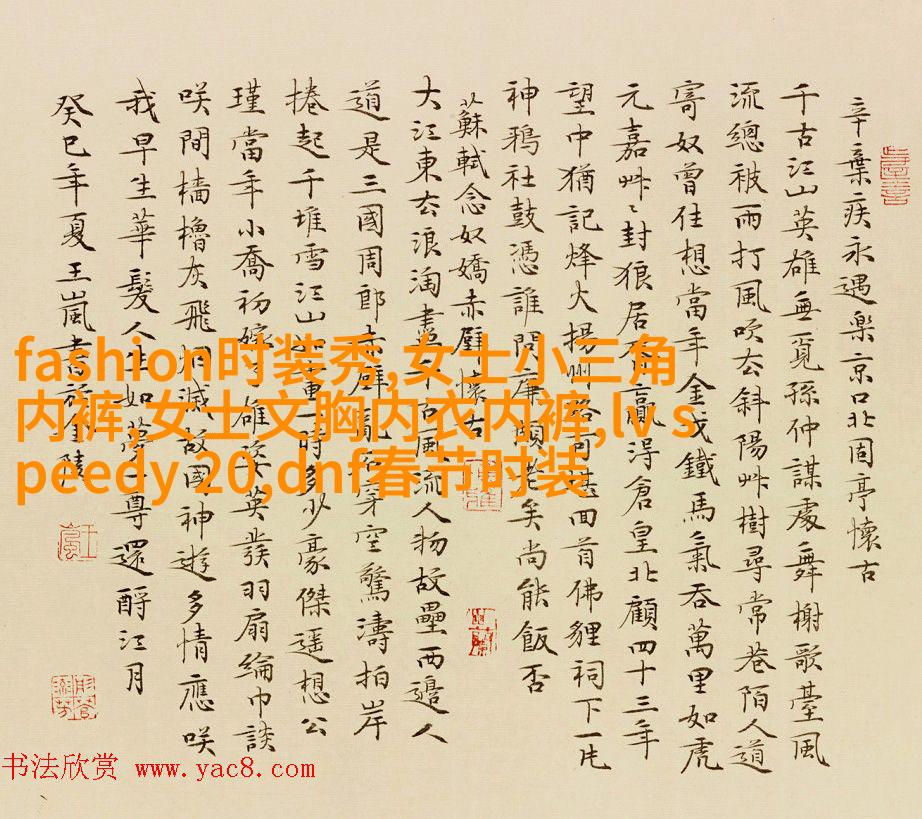 辛棄疾永遇樂京口北固亭懷古
千古江山英雄無覓孫仲謀處舞榭歌臺風
流總被雨打風吹去斜陽艸樹尋常巷陌人道
寄奴曾住想當年金戈鐵馬氣吞萬里如虎
元嘉艸〻封狼居胥贏得倉皇北顧四十三年
望中猶記烽火揚州路可堪回首佛貍祠下一片
神鴉社鼓憑誰問廉頗老矣尚能飯否
蘇軾念奴嬌赤壁懷古
大江東去浪淘盡千古風流人物故壘西邊人
道是三國周郎赤壁亂石穿空驚濤拍岸
捲起千堆雪江山如畫一時多少豪傑遥想公
瑾當年小喬初嫁了雄姿英發羽扇綸巾談
咲間檣櫓灰飛烟滅故國神遊多情應咲
我早生華髮人生如夢一尊還酹江月
癸巳年夏王嵐書於金陵
fashion时装秀,女士小三角
内裤,女士文胸内衣内裤,lv s
peedy 20,dnf春节时装
书法欣赏 www.yac8.com